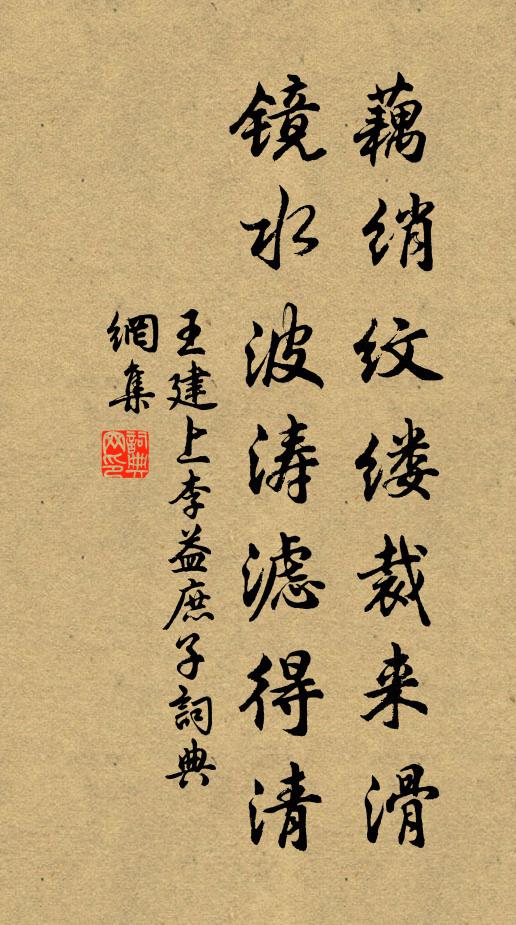 藕绡纹缕裁来滑
镜水波涛滤得清
王建上李益庶子詞典
網集
詞典网印